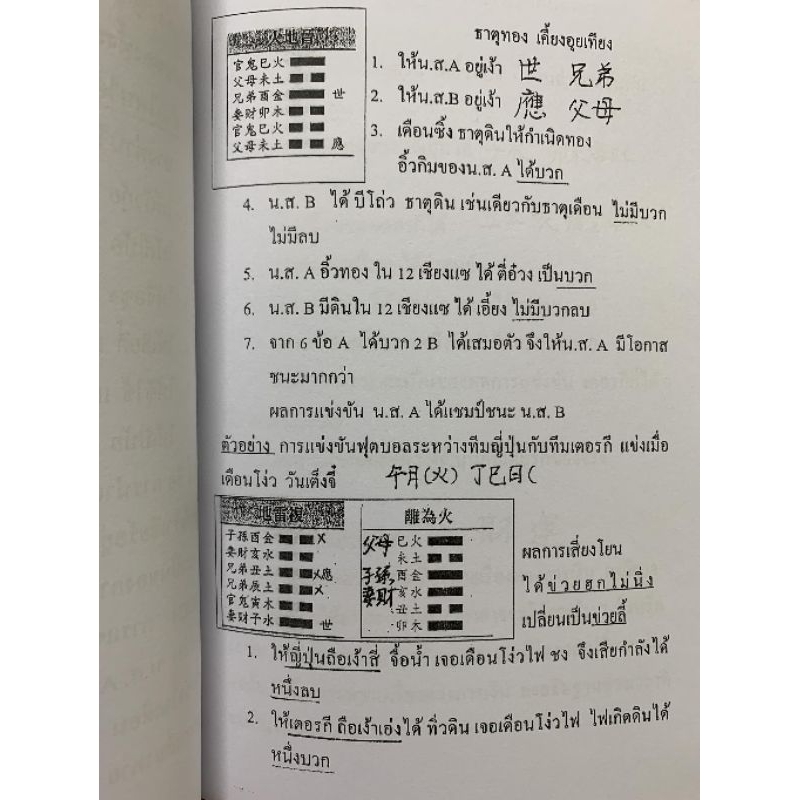 火地晉
官鬼巳火
父母未土
兄弟酉金 世
妻財卯木
官鬼巳火
父母未土 應
ธาตุทอง เคี้ยงอุยเทียง
1. ให้น.ส.A อยู่เง้า 世 兄弟
2. ให้น.ส.B อยู่เง้า 應 父母
3. เดือนซิ้ง ธาตุดินให้กำเนิดทอง
อิ้วกิมของน.ส. A ได้บวก
4. น.ส. B ได้ บีโถ่ว ธาตุดิน เช่นเดียวกับธาตุเดือน ไม่มีบวก
ไม่มีลบ
5. น.ส. A อิ้วทอง ใน 12 เชียงแซ ได้ ตี่อ๋วง เป็นบวก
6. น.ส. B มีดินใน 12 เชียงแซ ได้ เอี้ยง ไม่มีบวกลบ
7. จาก 6 ข้อ A ได้บวก 2 B ได้เสมอตัว จึงให้น.ส. A มีโอกาส
ชนะมากกว่า
ผลการแข่งขัน น.ส. A ได้แชมป์ชนะ น.ส. B
ตัวอย่าง การแข่งขันฟุตบอลระหว่างทีมญี่ปุ่นกับทีมเตอรกี แข่งเมื่อ
เดือนโง่ว วันเต็งจี๋ 午月(火) 丁巳日(
地雷複
子孫酉金 X
妻財亥水
兄弟丑土 X應
兄弟辰土 X
官鬼寅木
妻財子水 世
離為火
父母 巳火
未土
子孫 酉金
妻財 亥水
丑土
卯木
ผลการเสี่ยงโยน
ได้ข่วยฮกไม่นิ่ง
เปลี่ยนเป็นข่วยลี้
1. ให้ญี่ปุ่นถือเง้าสี่ จื้อน้ำ เจอเดือนโง่วไฟ ชง จึงเสียกำลังได้
หนึ่งลบ
2. ให้เตอรกี ถือเง้าเอ่งได้ ทิ่วดิน เจอเดือนโง่วไฟ ไฟเกิดดินได้
หนึ่งบวก